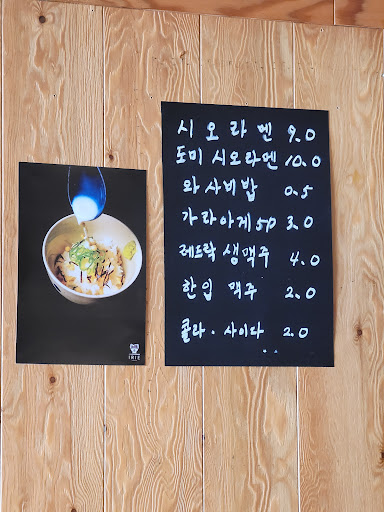 시오라멘 9.0
도미 시오라멘 10.0
와사비밥 0.5
가라아게 5P 3.0
레드락 생맥주 4.0
한입 맥주 2.0
콜라 · 사이다 2.0
IRIE